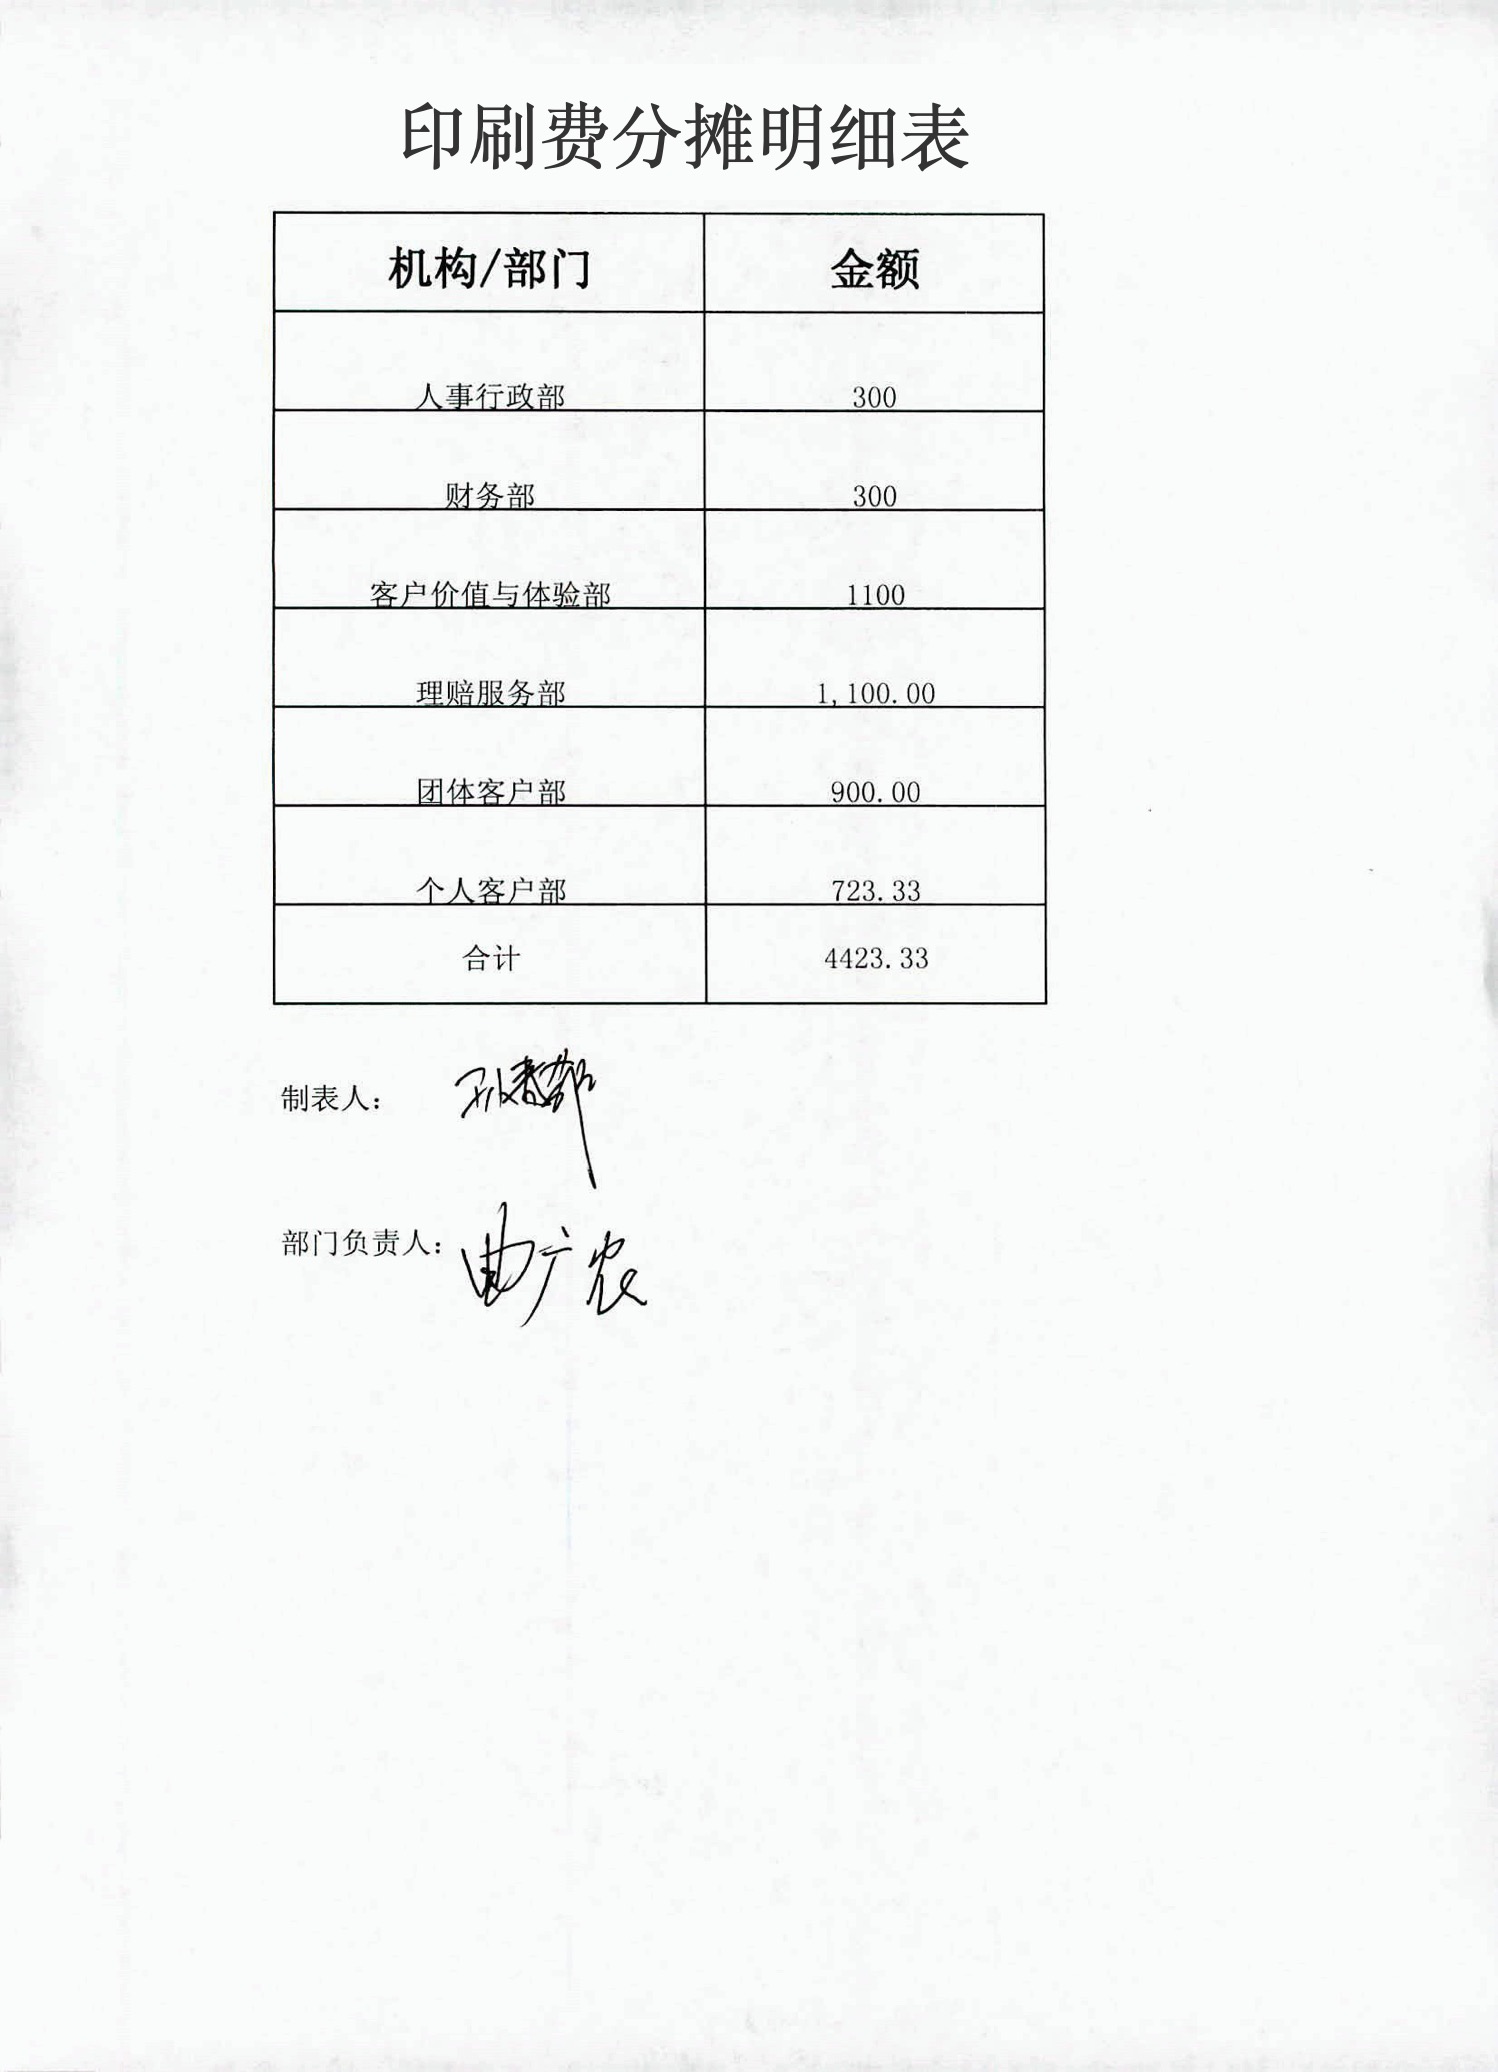 印刷费分摊明细表
机构/部门 金额
人事行政部 300
财务部 300
客户价值与体验部 1100
理赔服务部 1,100.00
团体客户部 900.00
个人客户部 723.33
合计 4423.33
制表人：
部门负责人：曲广农